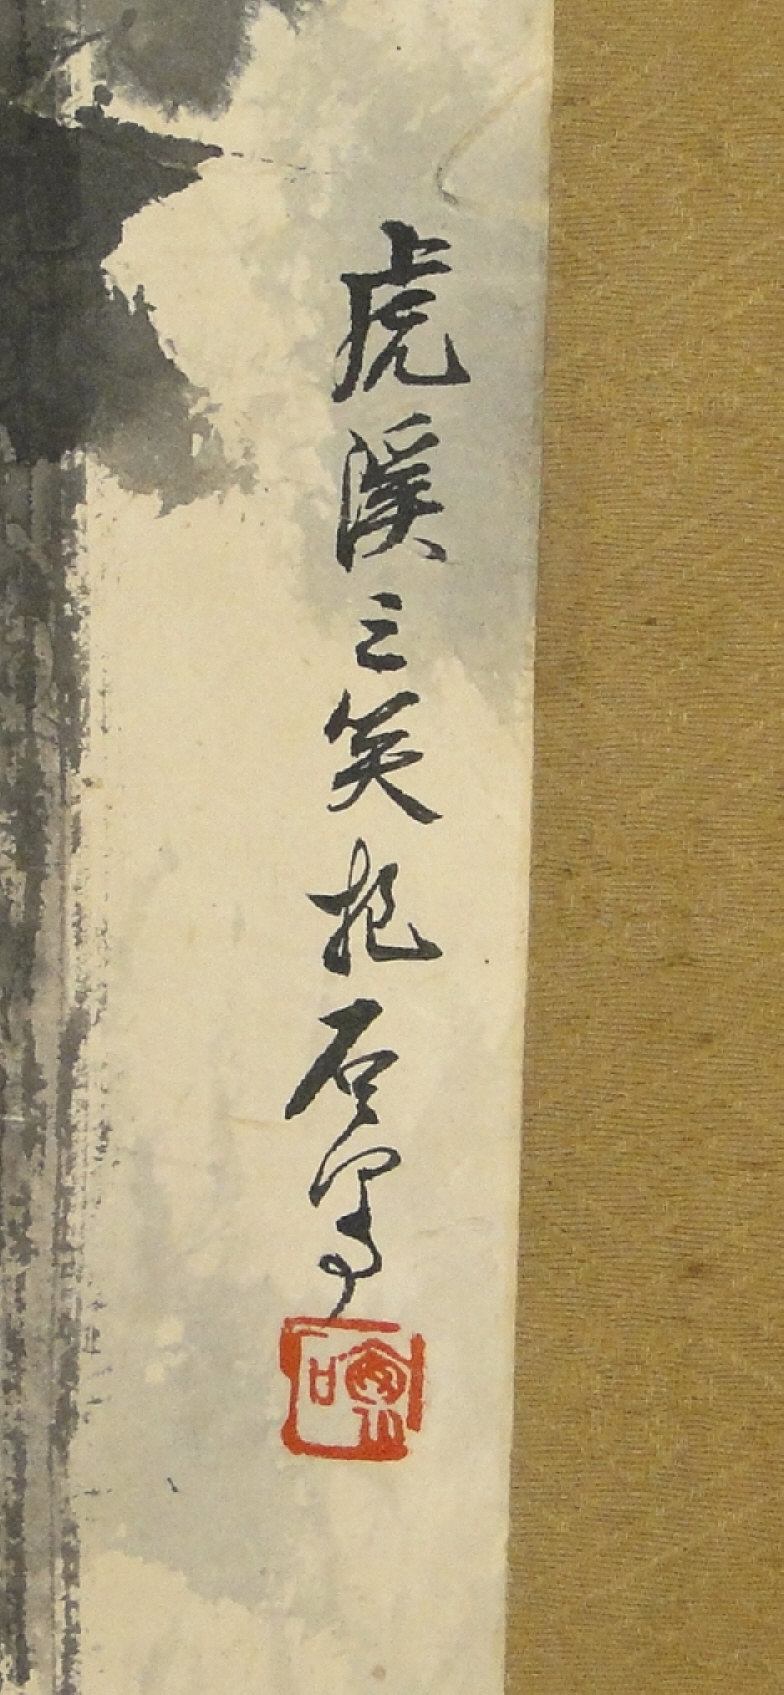 虎溪三笑抱石写